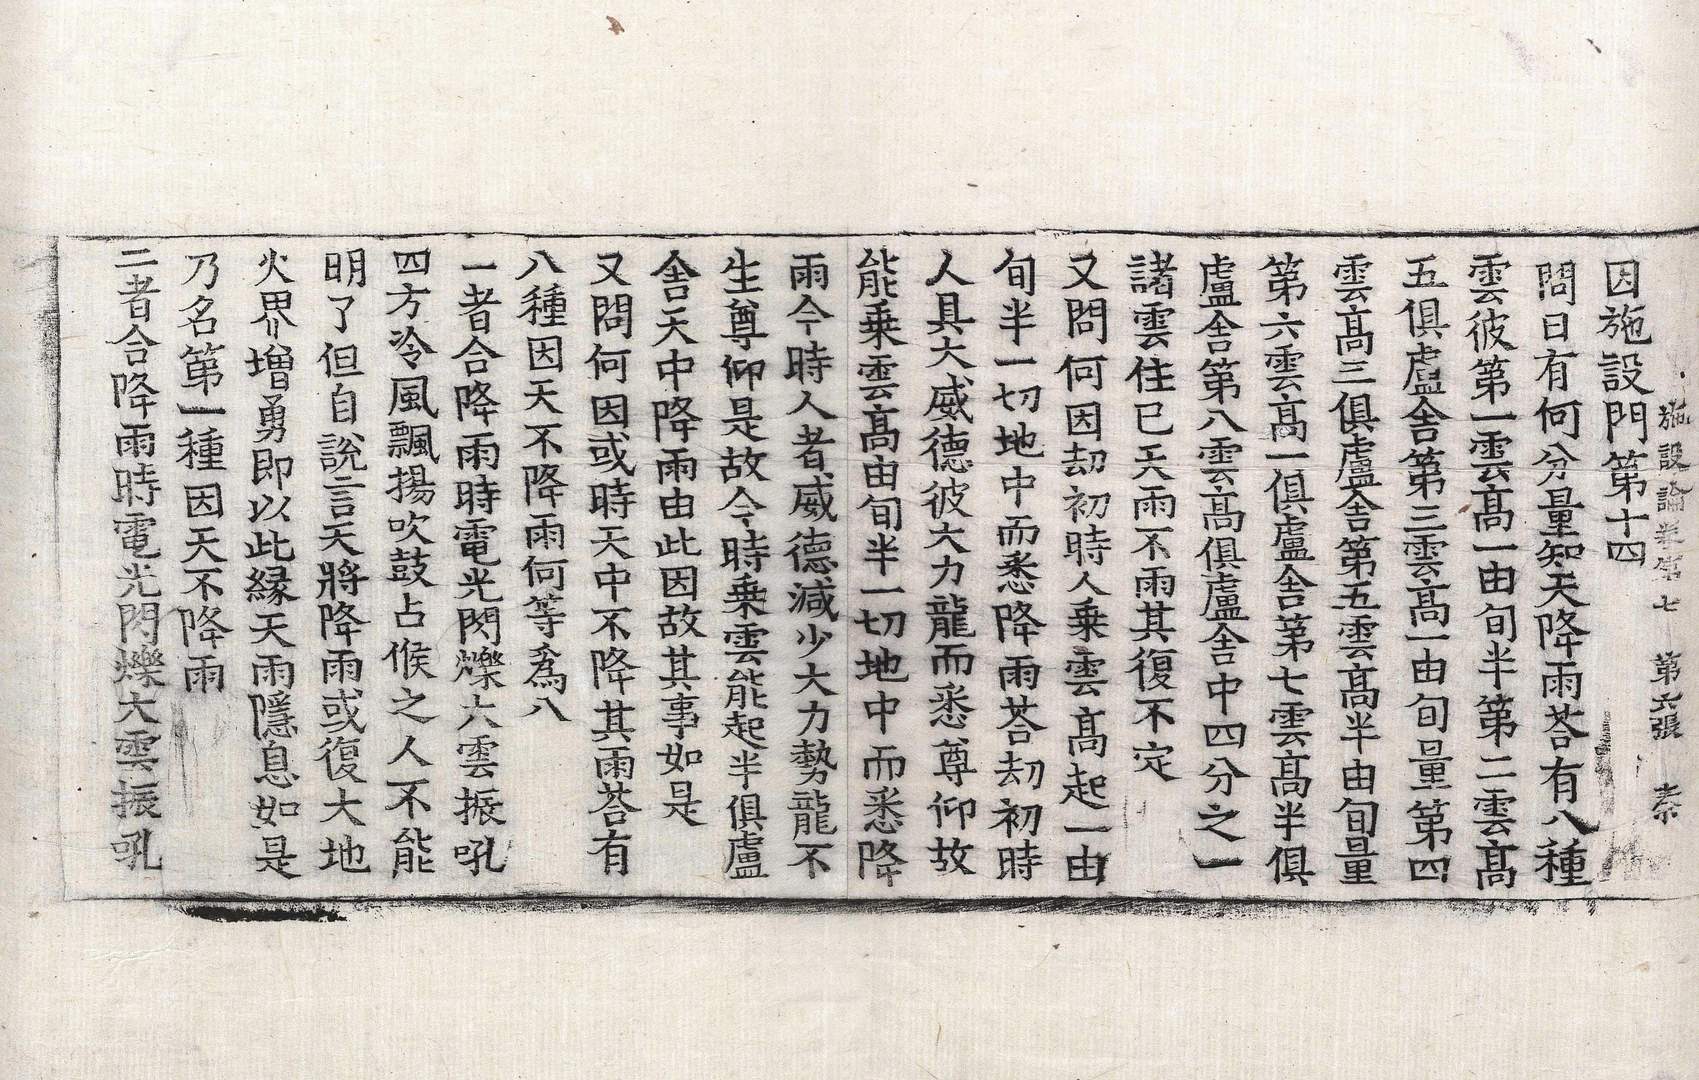 施設論卷第七 第六張 素
因施設門第十四
問曰有何分量知天降雨荅有八種
雲彼第一雲髙一由旬半第二雲髙
五俱盧舎第三雲髙一由旬量第四
雲髙三俱盧舎第五雲髙半由旬量
第六雲髙一俱盧舎第七雲髙半俱
盧舎第八雲髙俱盧舎中四分之一
諸雲住已天雨不雨其復不定
又問何因劫初時人乗雲髙起一由
旬半一切地中而悉降雨荅劫初時
人具大威德彼大力龍而悉尊仰故
能乗雲髙由旬半一切地中而悉降
雨今時人者威德減少大力勢龍不
生尊仰是故今時乗雲能起半俱盧
舎天中降雨由此因故其事如是
又問何因或時天中不降其雨荅有
八種因天不降雨何等爲八
一者合降雨時電光閃爍大雲振吼
四方冷風飄揚吹鼓占候之人不能
明了但自說言天將降雨或復大地
火界增勇即以此縁天雨隱息如是
乃名第一種因天不降雨
二者合降雨時電光閃爍大雲振吼